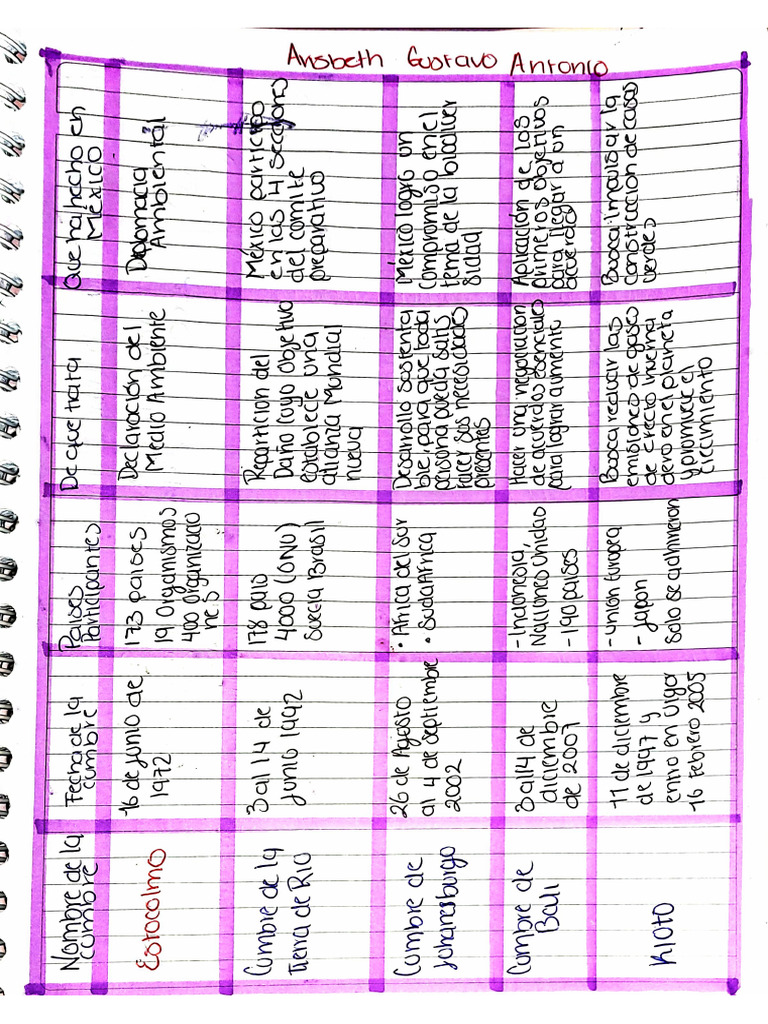 Ansbeth Gustavo Antonio
Nombre de la
cumbre
Fecha de la
cumbre
Países
Participantes
De que trata
Que ha hecho en
México
Estocolmo
16 de junio de
1972
173 países
19 Organismos
400 organizacio
ne.s
Declaración del
Medio Ambiente
Diplomacia
Ambiental
Cumbre de la
Tierra de Rio
3 al 14 de
junio 1992
178 pais
4000 (ONU)
Suecia Brasil
Reparticion del
Daño cuyo objetivo
establecie una
alianza Mundial
nueva
México participo
en las 4 secciones
del comite
preparativo
Cumbre de
Johanesburgo
26 de Agosto
al 4 de septiembre
2002
• Africa del sur
• SudaAfrica
Desarrollo sostenta
ble, para que toda
persona pueda satis
facer sus necesidades
presentes
México logro un
compromiso en el
tema de la biodiver
sidad
Cumbre de
Bali
3 al 14 de
diciembre
de 2007
- Indonesia,
Naciones Unidas
- 190 países
Hacer una negociacion
de acuerdos esenciales
para lograr aumento
Aplicación de los
primeros objetivos
para llegar a un
acuerdo
Kioto
11 de diciembre
de 1997 y
entro en vigor
16 febrero 2005
- Unión Europea
- Japon
Solo se adhirieron
Busca reducir las
emisiones de gases
de efecto inverna
dero en el planeta
y promueve el
crecimiento
Busca impulsar la
construccion de casas
verdes